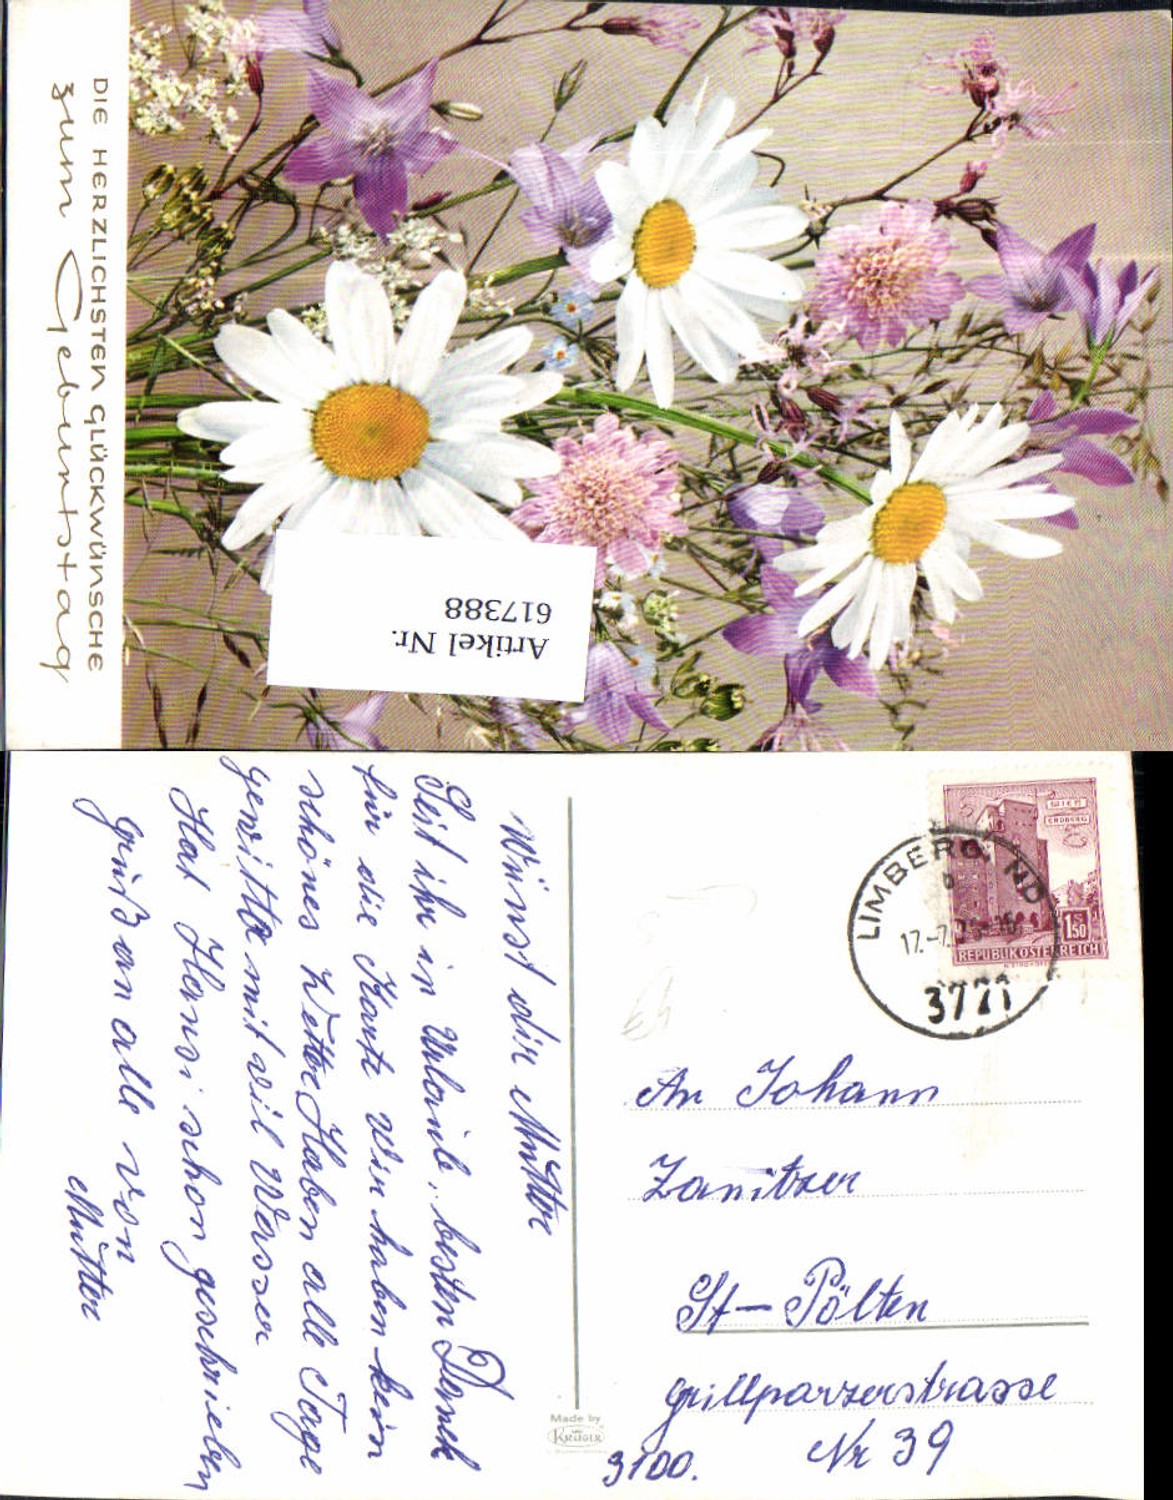 DIE HERZLICHSTEN GLÜCKWÜNSCHE
zum Geburtstag
Artikel Nr.
617388
Wünst dir Mutter
Seit ihr in Urlaub, besten Dank
für die Karte Wir haben kein
schönes Wetter Haben alle Tage
gewitter mit vil Wasser
Hat Hansi schon geschrieben
gruß an alle von
Mutter
WIEN
ERDBERG
S
1 50
REPUBLIK ÖSTERREICH
LIMBERG, ND
b
17.-7.
3721
An Johann
Zanitzer
St-Pölten
Grillparzerstrasse
Nr 39
3100.
Made by
KRÜGER